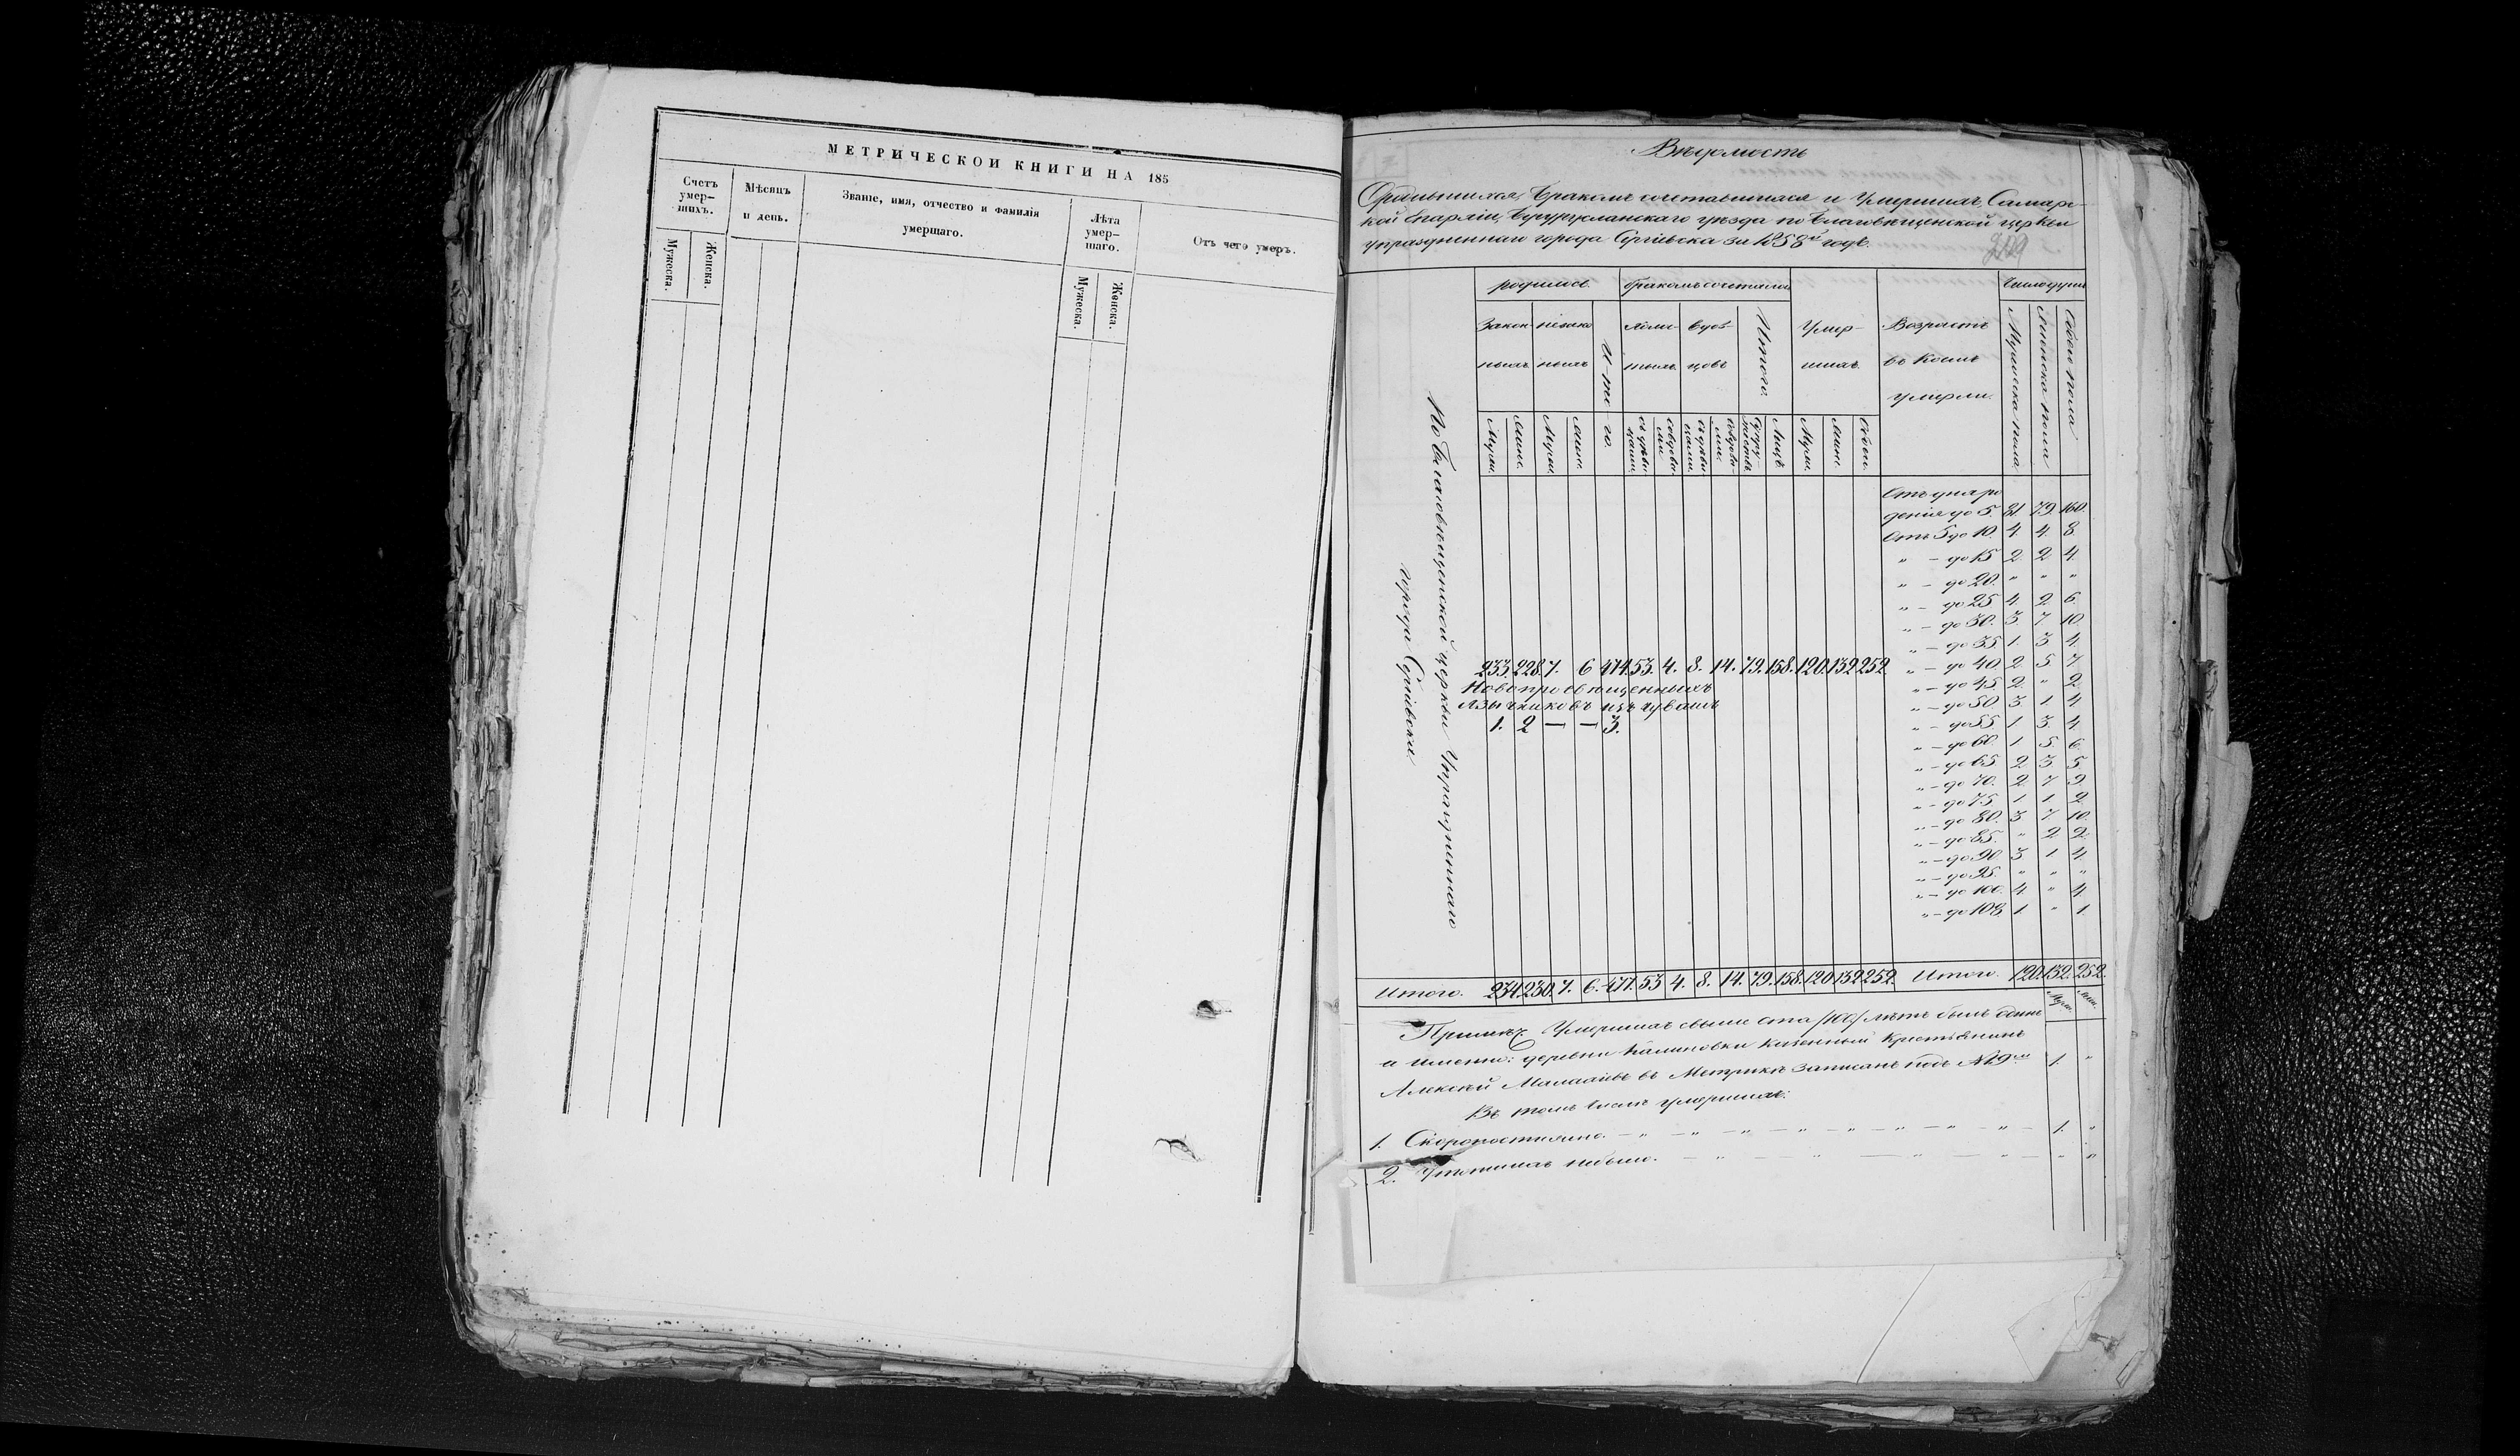 МЕТРИЧЕСКОЙ КНИГИ НА 185
Счетъ умер-шихъ.
Мѣсяцъ и день.
Званіе, имя, отчество и фамилія умершаго.
Лѣта умер-шаго.
Отъ чего умеръ.
Мужеска.
Женска.
Мужеска.
Женска.
Вѣдомость
О родившихся, бракомъ сочетавшихся и умершихъ Самарс-
кой Епархіи, Бугурусланскаго уѣзда по Благовѣщенской церкви
упраздненнаго города Сергіевска за 1858й годъ.
родилось
бракомъ сочеталось
Число душъ
Закон-ныхъ
незако-ныхъ
И-то го.
вдов-цовъ
Итого.
Умер-шихъ.
Возрастъ
въ коемъ
умерли.
Мужеска пола
Женска пола
Обоего пола
Муж.
Женс.
Муж.
Женс.
Лицъ
Муж.
Женс.
Обоего.
По Благовѣщенской церкви Упраздненнаго
города Сергіевска
Отъ дня ро
денія до 5. 81 79. 160.
Отъ 5 до 10. 4. 4. 8
" - до 15 2 2 4.
" - до 20. " " "
" - до 25 4. 2. 6.
" - до 30. 3. 7 10
" - до 35 1. 3 4.
" - до 40. 2. 5 7.
" - до 45. 2. " 2.
" - до 50. 3 1 4
" - до 55 1 3. 4.
" - до 60. 1 5. 6.
" - до 65. 2 3 5.
" - до 70. 2. 7 9.
" - до 75 1 1. 2.
" - до 80. 3 7 10.
" - до 85. " 2. 2.
" - до 90 3 1 4.
" - до 95. " " "
" - до 100. 4 " 4
" - до 108. 1. " 1.
233. 228. 7. 6 474. 53. 4. 8. 14. 79. 158. 120. 132 252.
Новопросвѣщенныхъ
язычниковъ изъ чувашъ
1. 2 — — 3.
Итого. 234 230. 7. 6. 477. 53 4. 8. 14. 79. 158. 120 132 252. Итого. 120. 132. 252.
Муж. Жен.
Примѣч. Умершихъ свыше ста /100/ лѣтъ былъ одинъ
а именно: деревни Калиновки казенный крестьянинъ
Алексѣй въ Метрикѣ записанъ подъ № 1. "
Въ томъ числѣ умершихъ:
1. Скоропостижно. 1. "
2. Утопшихъ небыло. " "